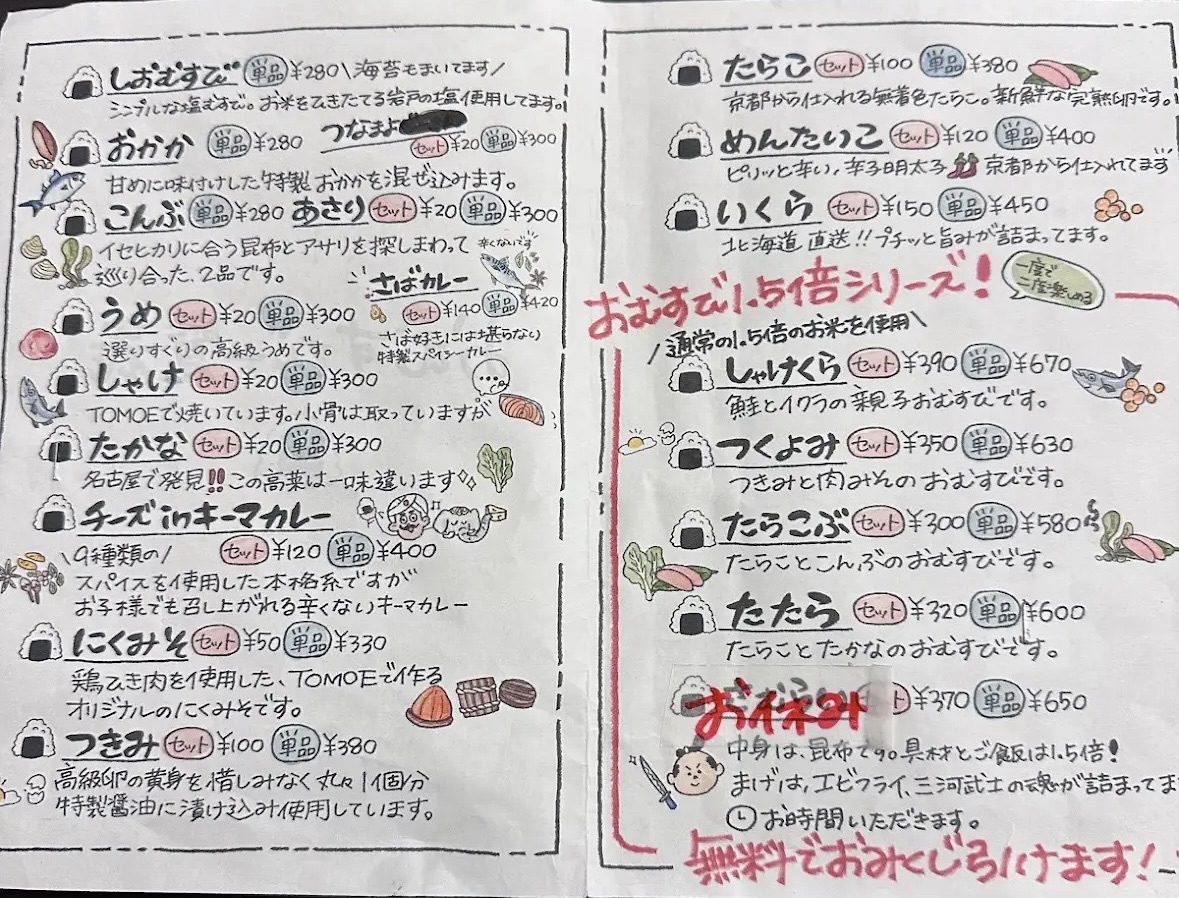 しおむすび 単品 ¥280 \海苔もまいてます/
シンプルな塩むすび。お米をひきたてる岩戸の塩使用してます。
おかか 単品 ¥280 つなまよ セット ¥20 単品 ¥300
甘めに味付けした特製おかかを混ぜ込みます。
こんぶ 単品 ¥280 あさり セット ¥20 単品 ¥300
イセヒカリに合う昆布とアサリを探しまわって
巡り合った、2品です。
辛くないです
さばカレー
セット ¥140 単品 ¥420
さば好きには堪らない
特製スパイシーカレー
うめ セット ¥20 単品 ¥300
選りすぐりの高級うめです。
しゃけ セット ¥20 単品 ¥300
TOMOEで焼いています。小骨は取っていますが
...
たかな セット ¥20 単品 ¥300
名古屋で発見!!この高菜は一味違います
チーズinキーマカレー
\9種類の/ セット ¥120 単品 ¥400
スパイスを使用した本格系ですが
お子様でも召し上がれる辛くないキーマカレー
にくみそ セット ¥50 単品 ¥330
鶏ひき肉を使用した、TOMOEで作る
オリジナルのにくみそです。
つきみ セット ¥100 単品 ¥380
高級卵の黄身を惜しみなく丸々1個分
特製醤油に漬け込み使用しています。
たらこ セット ¥100 単品 ¥380
京都から仕入れる無着色たらこ。新鮮な完熟卵です。
めんたいこ セット ¥120 単品 ¥400
ピリッと辛い、辛子明太子 京都から仕入れてます
いくら セット ¥150 単品 ¥450
北海道直送!!プチッと旨みが詰まってます。
おむすび1.5倍シリーズ!
一度で
二度楽しめる
/通常の1.5倍のお米を使用\
しゃけくら セット ¥390 単品 ¥670
鮭とイクラの親子おむすびです。
つくよみ セット ¥350 単品 ¥630
つきみと肉みそのおむすびです。
たらこぶ セット ¥300 単品 ¥580
たらことこんぶのおむすびです。
たたら セット ¥320 単品 ¥600
たらことたかなのおむすびです。
お休み ット ¥370 単品 ¥650
中身は、昆布です。具材とご飯は1.5倍!
まげは、エビフライ、三河武士の魂が詰まってま
お時間いただきます。
無料でおみくじ引けます!